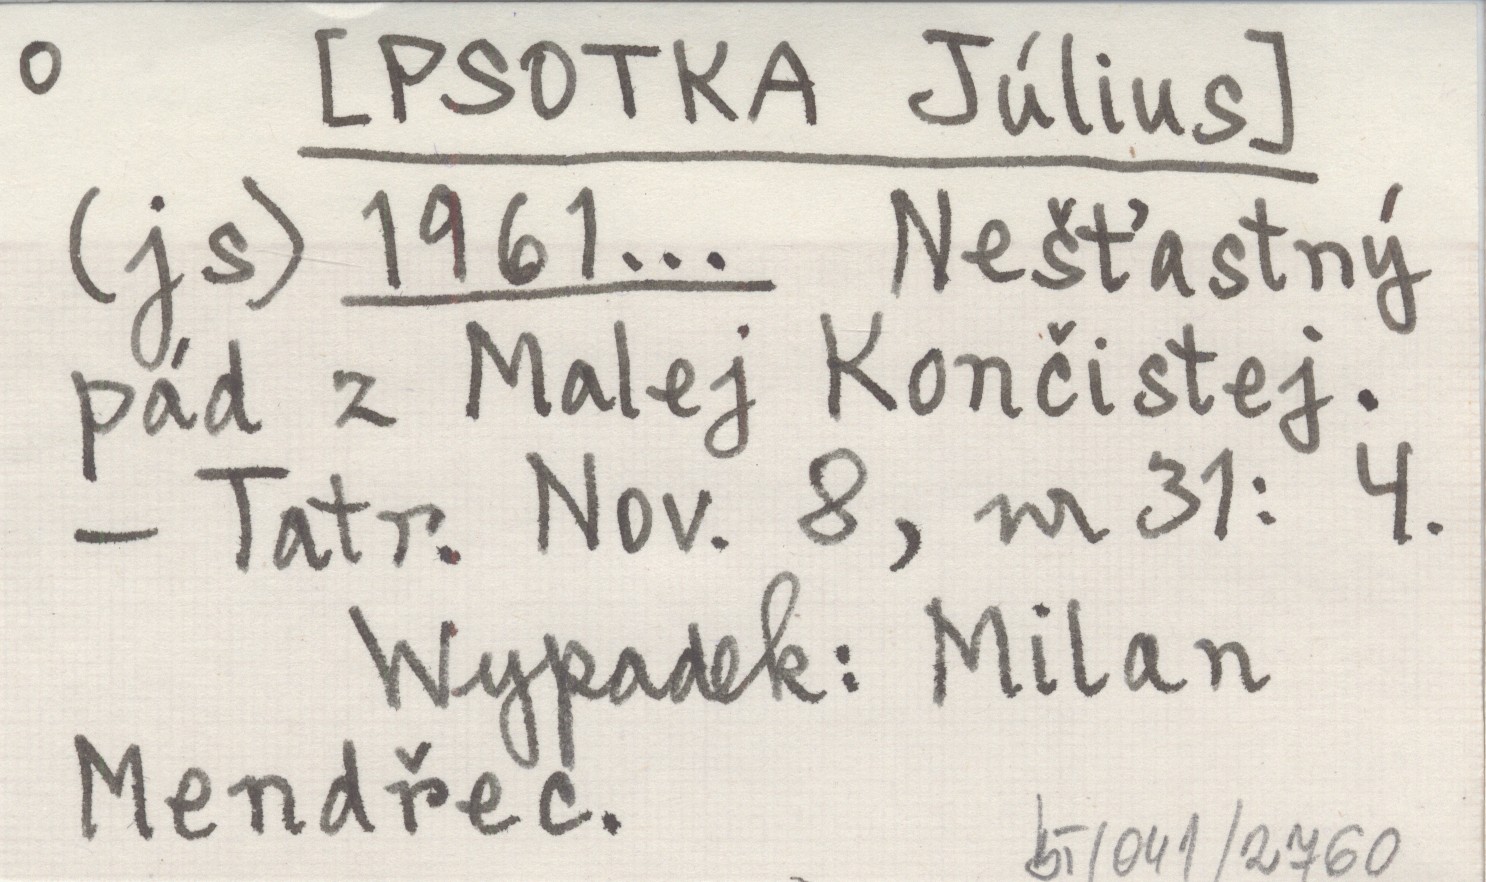 o [PSOTKA Július]
(js) 1961... Nešťastný
pád z Malej Končistej.
– Tatr. Nov. 8, nr 31: 4.
Wypadek: Milan
Mendřec.
/041/2760